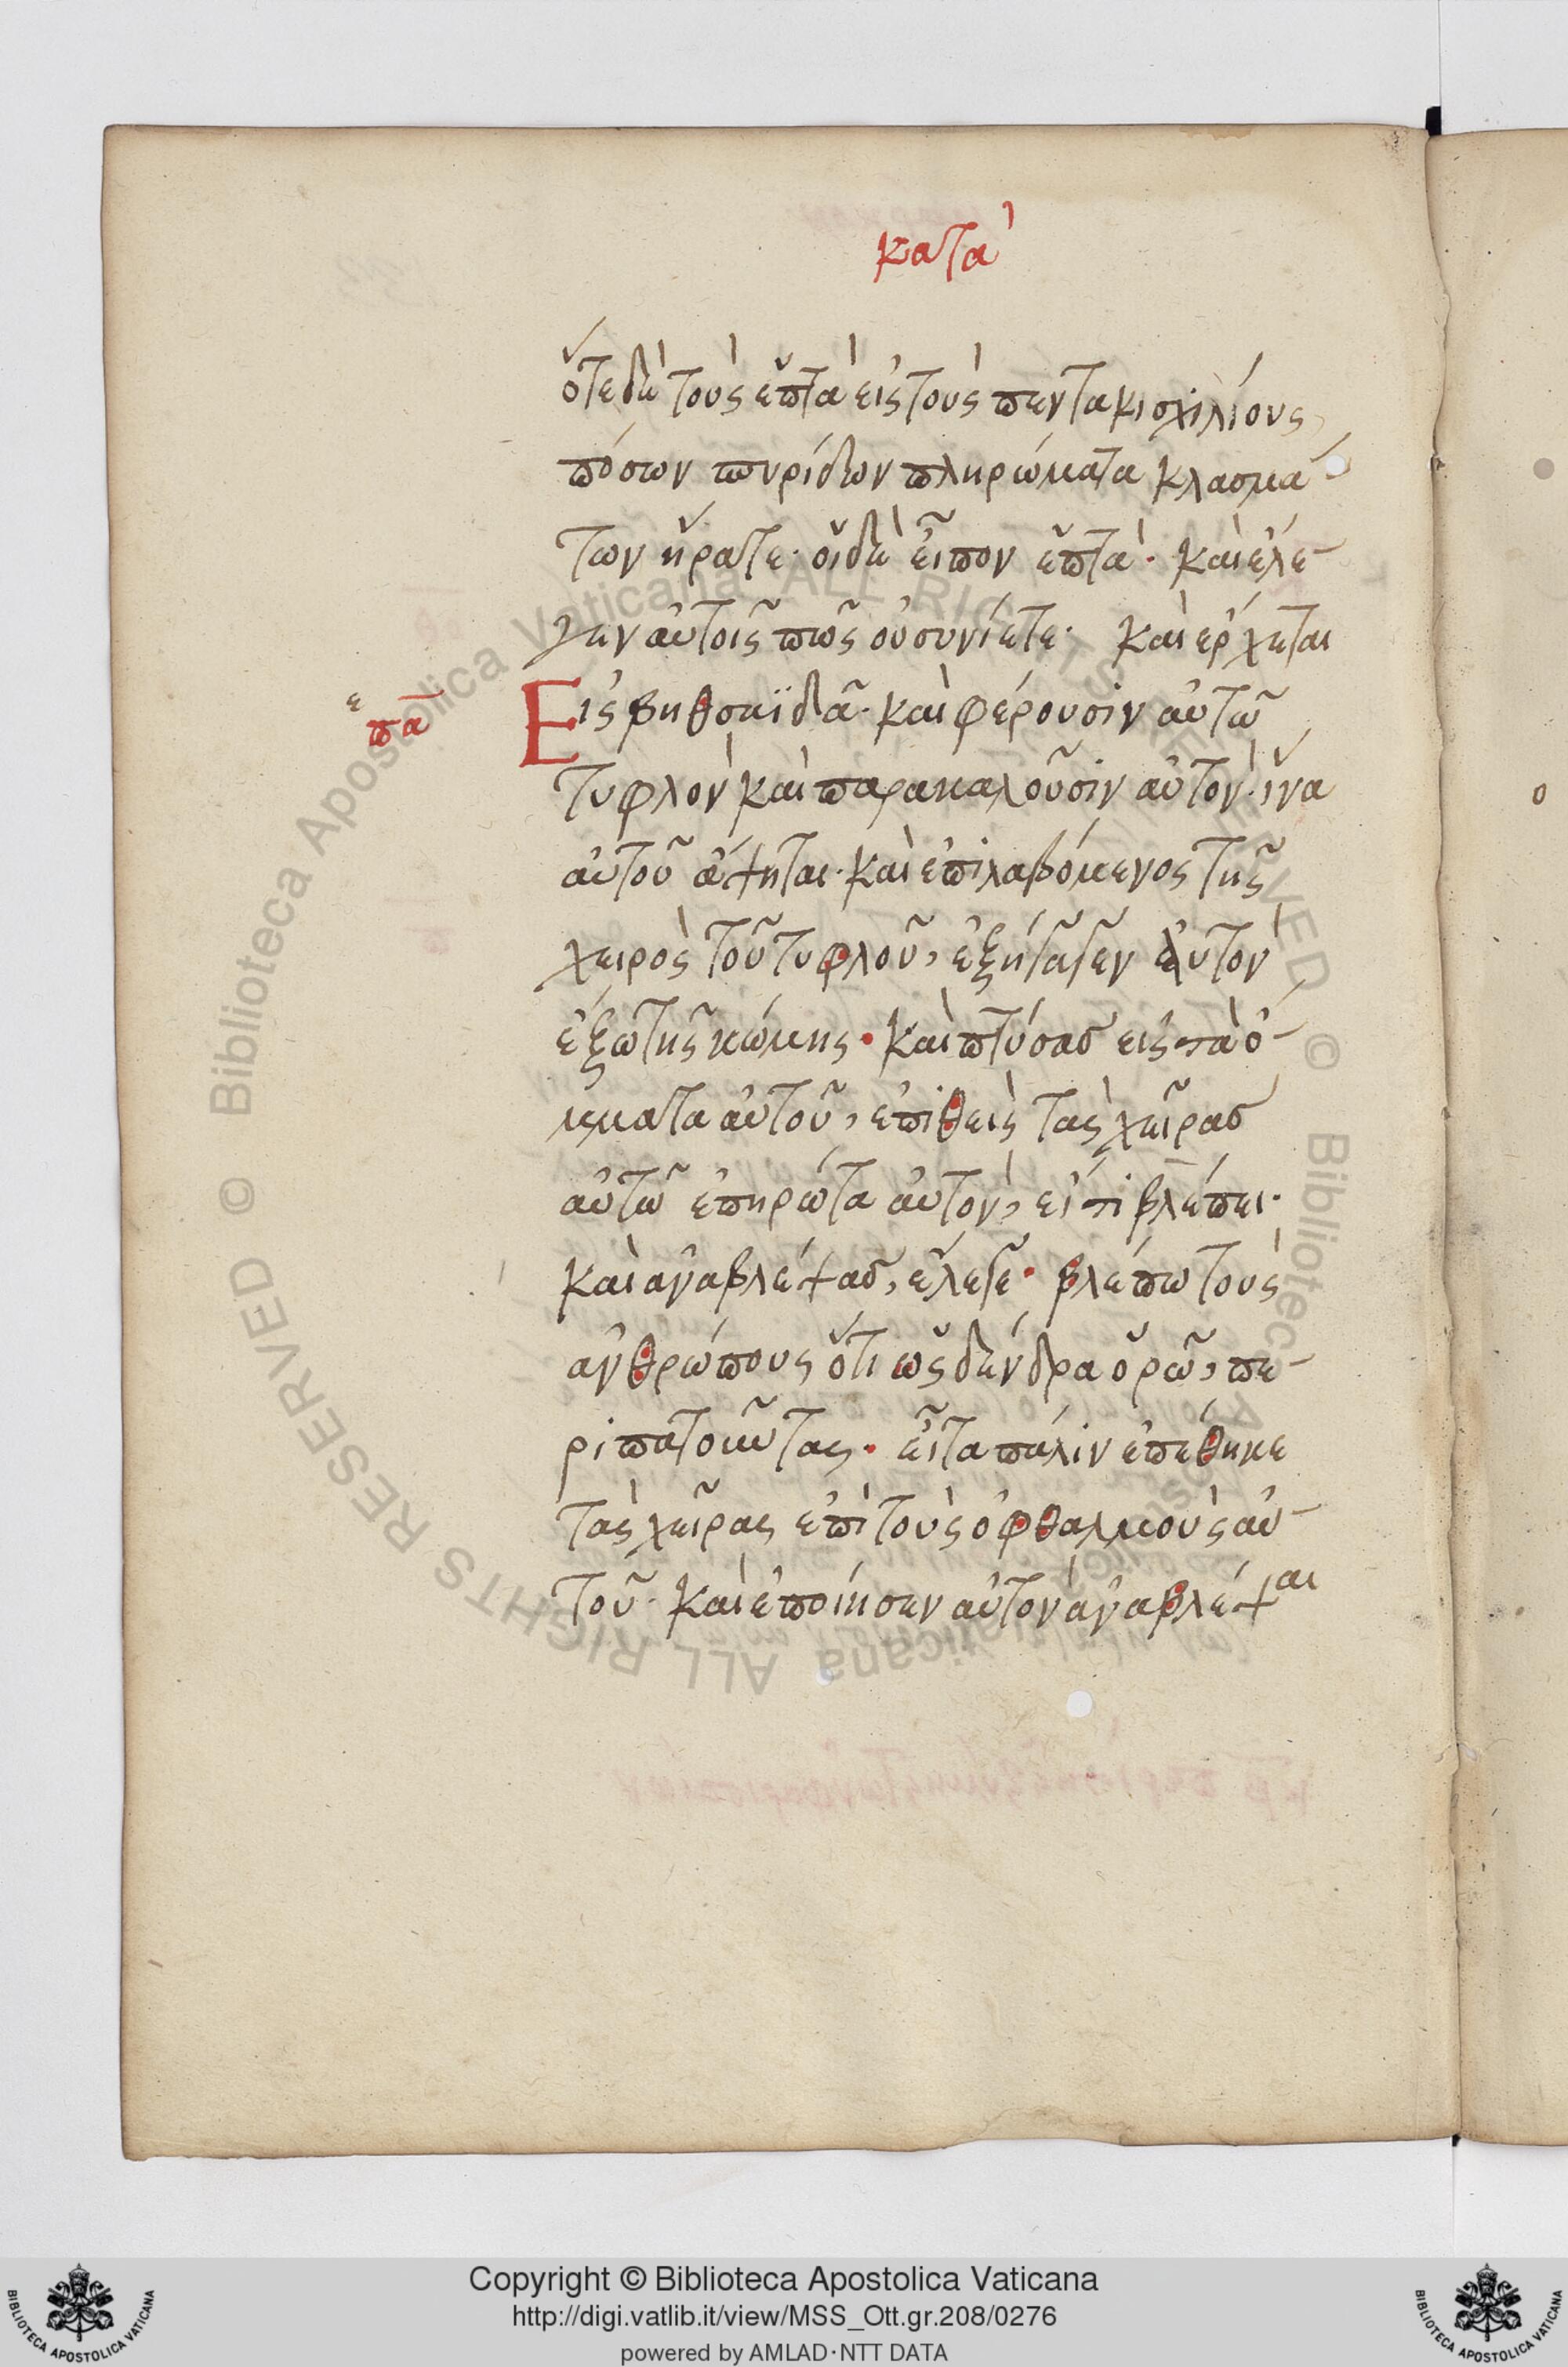 κατὰ
ὅτε δὲ τοὺς ἑπτὰ εἰς τοὺς πεντακισχιλίους,
πόσων πυρίδων πληρώματα κλασμά-
των ἤρατε· οἱ δὲ εἶπον ἑπτά· καὶ ἔλε-
γεν αὐτοῖς πῶς οὐ συνίετε· καὶ ἔρχεται
Εἰς βηθσαϊδᾶ· καὶ φέρουσιν αὐτῶ
ε
πα
τυφλὸν καὶ παρακαλοῦσιν αὐτὸν· ἵνα
αὐτοῦ ἅψηται· καὶ ἐπιλαβόμενος τῆς
χειρὸς τοῦ τυφλοῦ, ἐξήγαγεν αὐτὸν
ἔξω τῆς κώμης· καὶ πτύσας εἰς τὰ ὄ-
μματα αὐτοῦ, ἐπιθεὶς τὰς χεῖρας
αὐτῶ ἐπηρώτα αὐτὸν, εἴ τι βλέπει·
καὶ ἀναβλέψας, ἔλεγε· βλέπω τοὺς
ἀνθρώπους ὅτι ὡς δένδρα ὁρῶ, πε-
ριπατοῦντας· εἶτα πάλιν ἐπέθηκε
τὰς χεῖρας ἐπὶ τοὺς ὀφθαλμοὺς αὐ-
τοῦ· καὶ ἐποίησεν αὐτὸν ἀναβλέψαι
© Biblioteca Apostolica Vaticana ALL RIGHTS RESERVED © Biblioteca Apostolica Vaticana ALL RIGHTS RESERVED
Copyright © Biblioteca Apostolica Vaticana
http://digi.vatlib.it/view/MSS_Ott.gr.208/0276
powered by AMLAD·NTT DATA
BIBLIOTECA APOSTOLICA VATICANA
BIBLIOTECA APOSTOLICA VATICANA